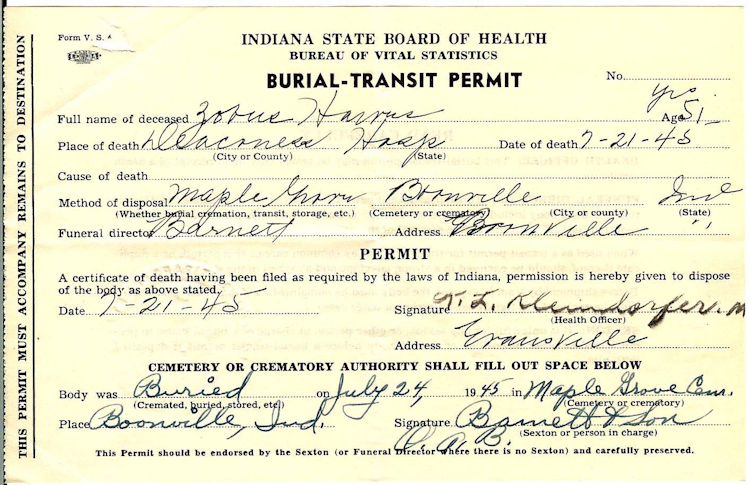 Form V. S.
INDIANA STATE BOARD OF HEALTH
BUREAU OF VITAL STATISTICS
BURIAL-TRANSIT PERMIT
No.
Full name of deceased Zobus Harris Age 51 yrs
Place of death Deaconess Hosp Date of death 7-21-45
(City or County) (State)
Cause of death
Method of disposal Maple Grove Boonville Ind
(Whether burial cremation, transit, storage, etc.) (Cemetery or crematory) (City or county) (State)
Funeral director Barnett Address Boonville "
PERMIT
A certificate of death having been filed as required by the laws of Indiana, permission is hereby given to dispose
of the body as above stated.
Date 7-21-45 Signature K. L. Kleindorfer. M
(Health Officer)
Address Evansville
CEMETERY OR CREMATORY AUTHORITY SHALL FILL OUT SPACE BELOW
Body was Buried on July 24, 1945 in Maple Grove Cem.
(Cremated, buried, stored, etc.) (Cemetery or crematory)
Place Boonville, Ind. Signature Barnett & Son
(Sexton or person in charge)
This Permit should be endorsed by the Sexton (or Funeral Director where there is no Sexton) and carefully preserved.
THIS PERMIT MUST ACCOMPANY REMAINS TO DESTINATION